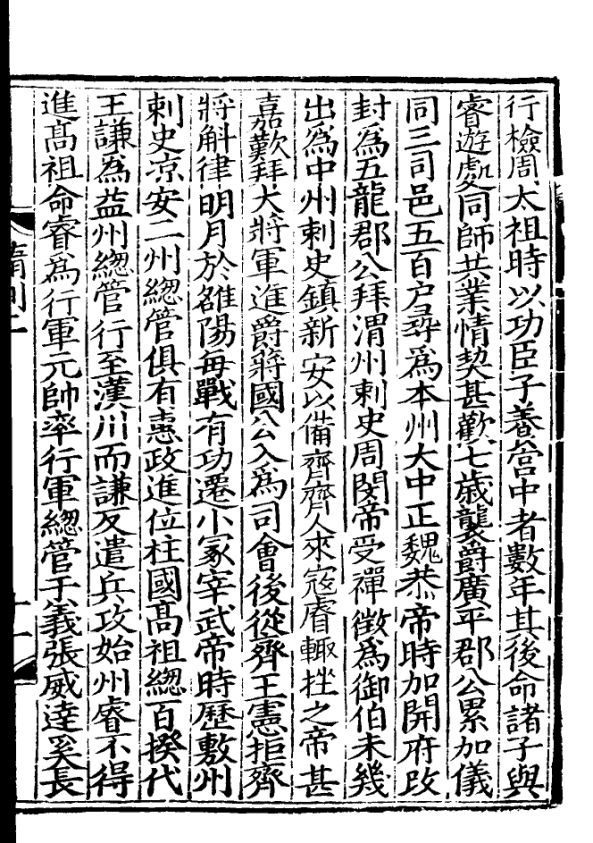 行檢周太祖時以功臣子養宮中者數年其後命諸子與
睿遊處同師共業情契甚歡七歲襲爵廣平郡公累加儀
同三司邑五百户尋爲本州大中正魏恭帝時加開府攺
封爲五龍郡公拜渭州刺史周閔帝受禪徵爲御伯未幾
出爲中州刺史鎮新安以備齊齊人來寇睿輙挫之帝甚
嘉歎拜大將軍進爵蔣國公入爲司會後從齊王憲拒齊
將斛律明月於雒陽每戰有功遷小冢宰武帝時歷敷州
刺史凉安二州緫管俱有惠政進位柱國髙祖緫百揆代
王謙爲益州緫管行至漢川而謙反遣兵攻始州睿不得
進髙祖命睿爲行軍元帥率行軍緫管于義張威達奚長